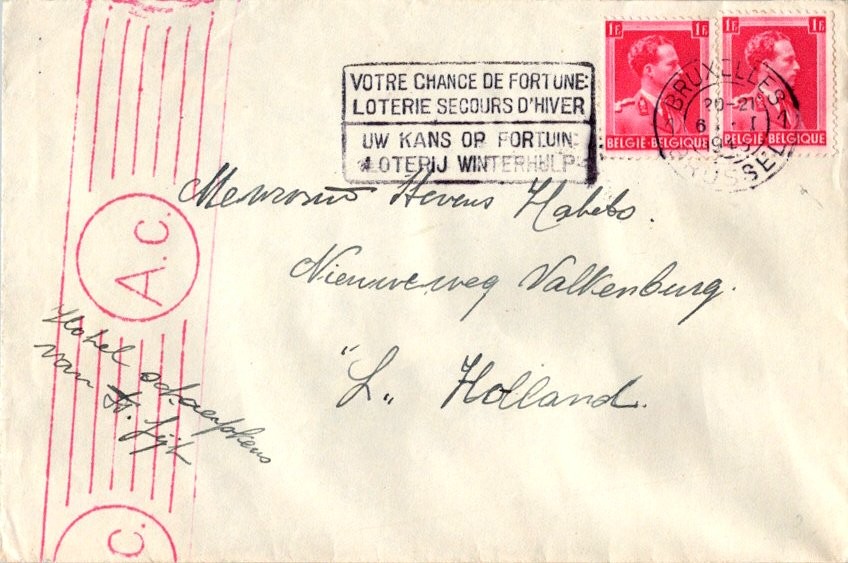 1F 1F
BELGIE-BELGIQUE BELGIE-BELGIQUE
BRUXELLES 1
20-21
6
BRUSSEL
VOTRE CHANCE DE FORTUNE:
LOTERIE SECOURS D'HIVER
UW KANS OP FORTUIN:
LOTERIJ WINTERHULP
Hevens
Nieuweweg Valkenburg.
"L„ Holland.
A.c.
Hotel Schaepkens
van St. Fijt
c.